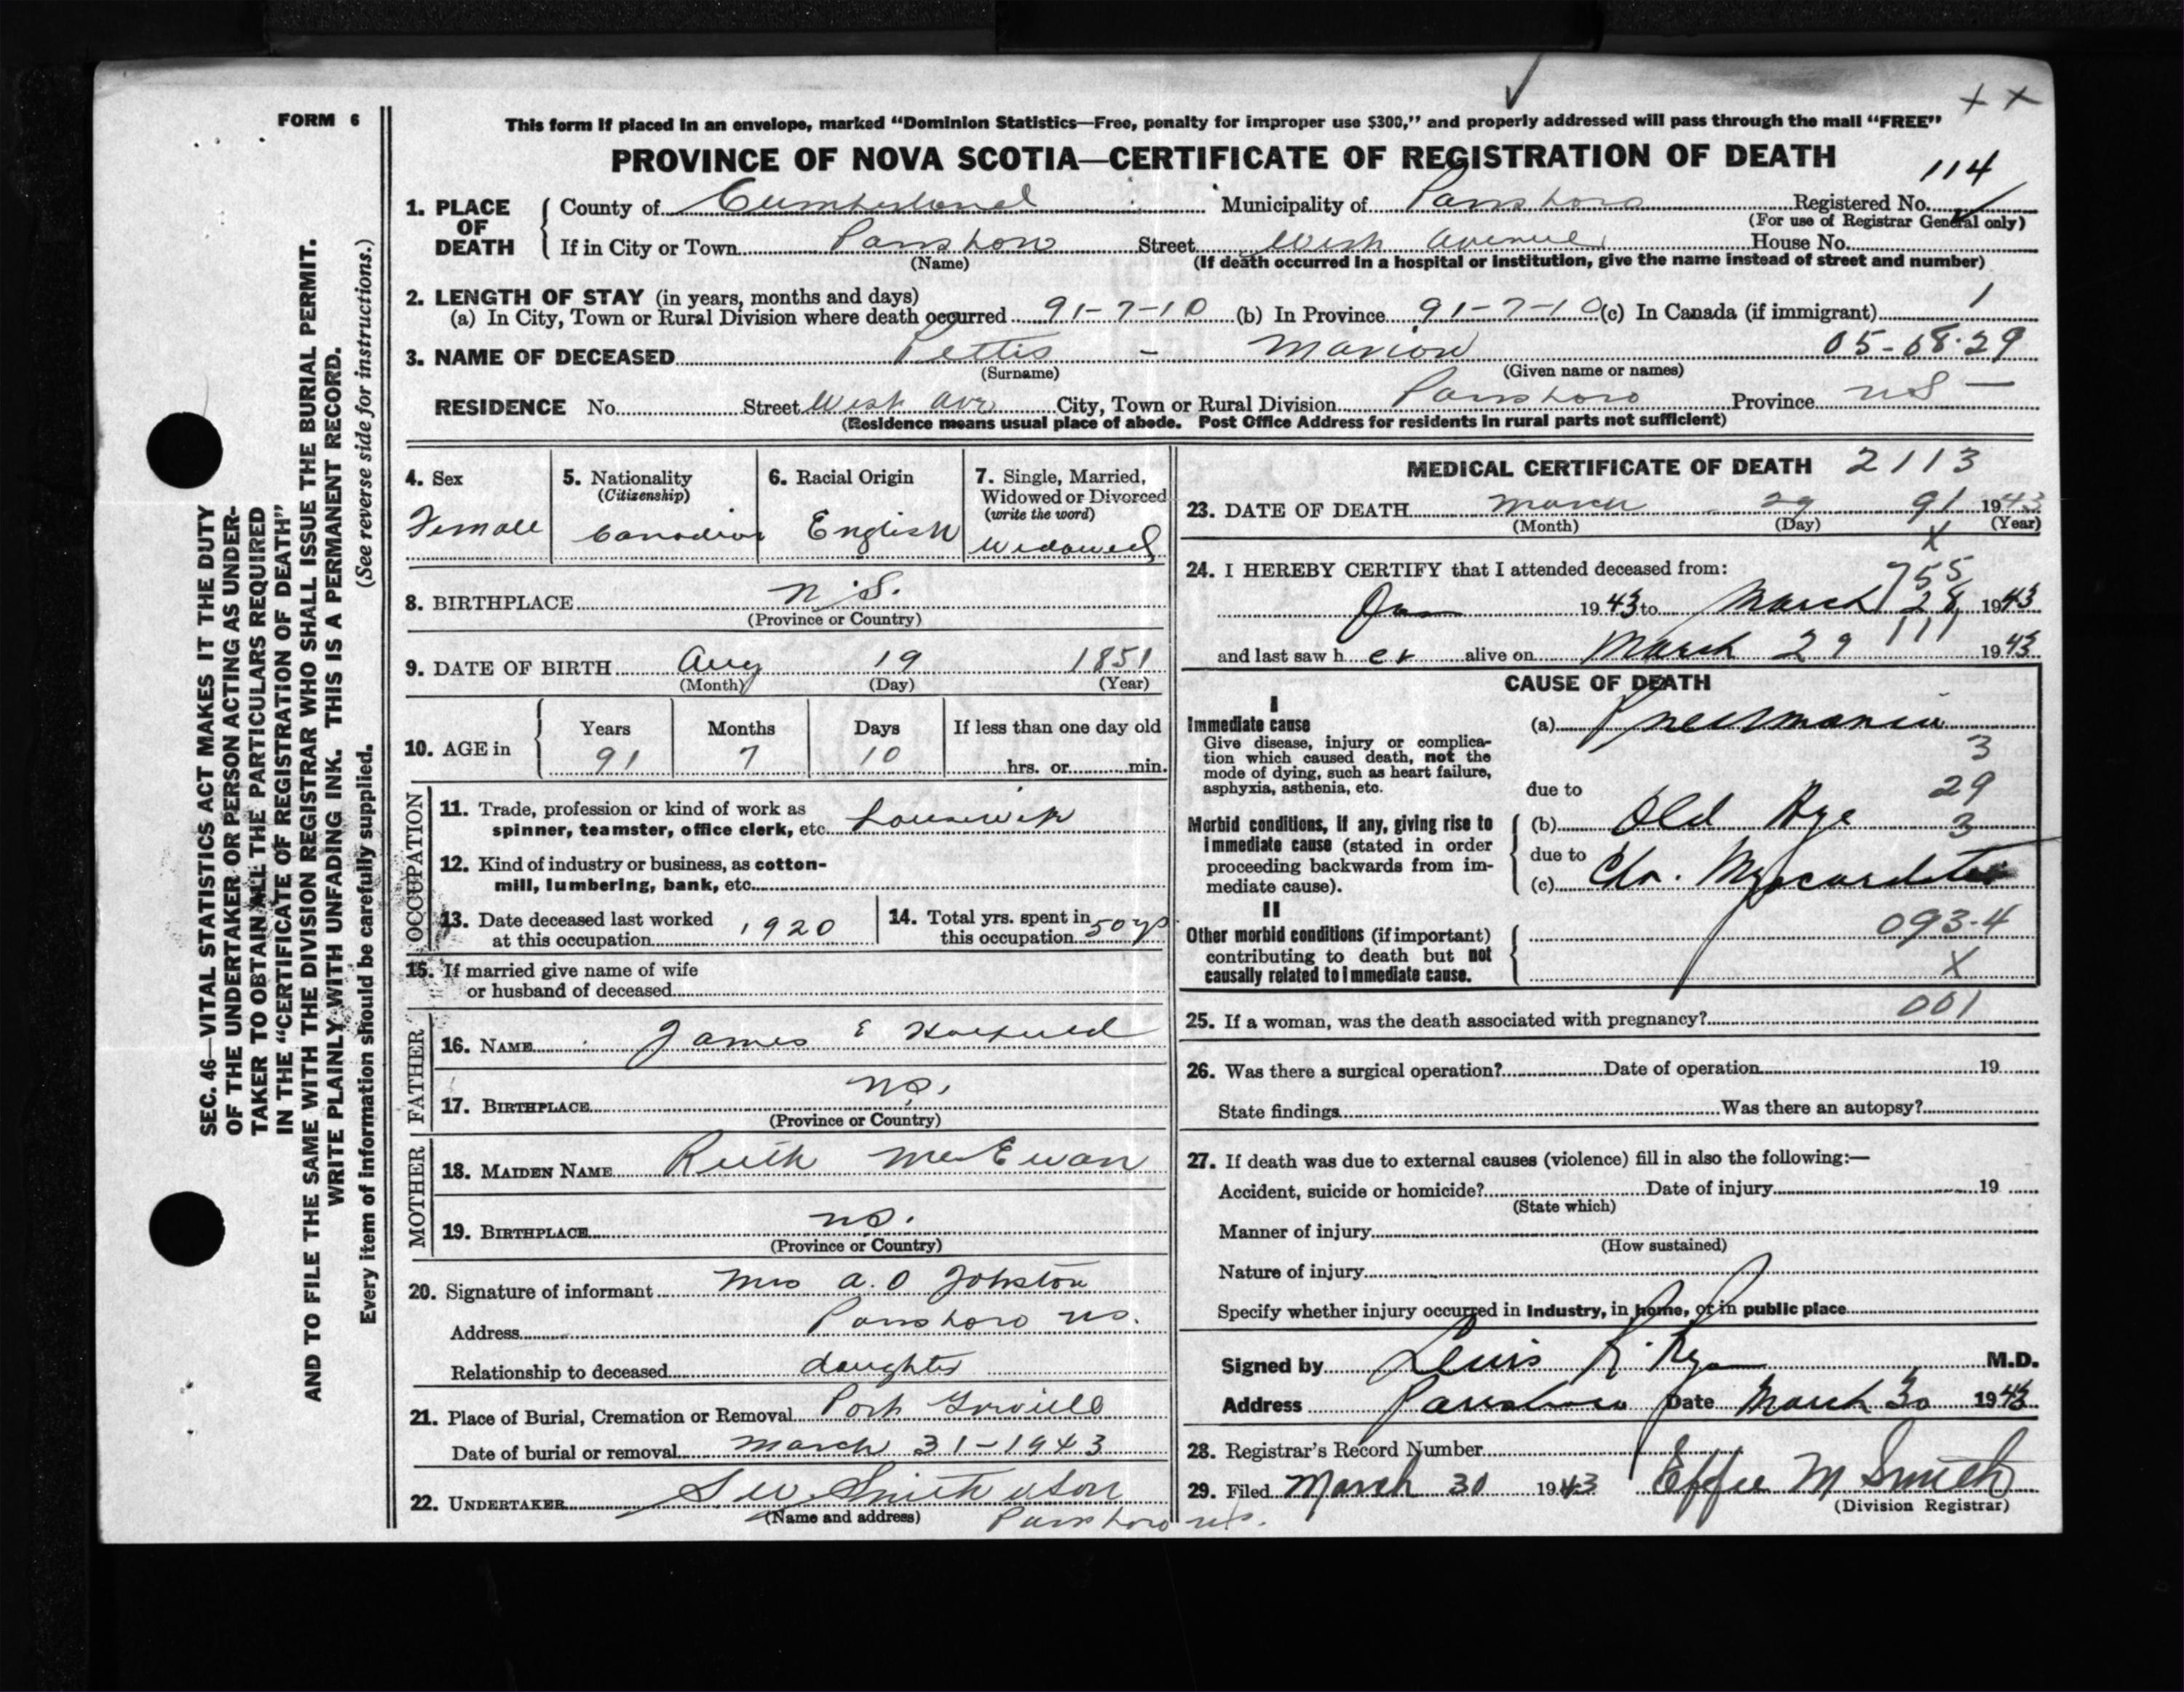 FORM 6
This form if placed in an envelope, marked "Dominion Statistics—Free, penalty for improper use $300," and properly addressed will pass through the mail "FREE"
PROVINCE OF NOVA SCOTIA—CERTIFICATE OF REGISTRATION OF DEATH
114
1. PLACE OF DEATH County of Cumberland Municipality of Parrsboro Registered No.
(For use of Registrar General only)
If in City or Town Parrsboro Street West Avenue House No.
(Name) (If death occurred in a hospital or institution, give the name instead of street and number)
2. LENGTH OF STAY (in years, months and days)
(a) In City, Town or Rural Division where death occurred 91-7-10 (b) In Province 91-7-10 (c) In Canada (if immigrant) 1
3. NAME OF DECEASED Pettis - Marion 05-08-29
(Surname) (Given name or names)
RESIDENCE No. Street West Ave City, Town or Rural Division Parrsboro Province NS
(Residence means usual place of abode. Post Office Address for residents in rural parts not sufficient)
4. Sex Female
5. Nationality (Citizenship) Canadian
6. Racial Origin English
7. Single, Married, Widowed or Divorced (write the word) Widowed
8. BIRTHPLACE N.S.
(Province or Country)
9. DATE OF BIRTH Aug 19 1851
(Month) (Day) (Year)
10. AGE in Years Months Days If less than one day old
91 7 10 hrs. or min.
OCCUPATION
11. Trade, profession or kind of work as
spinner, teamster, office clerk, etc. housewife
12. Kind of industry or business, as cotton-
mill, lumbering, bank, etc.
13. Date deceased last worked
at this occupation 1920
14. Total yrs. spent in
this occupation 50 yrs
15. If married give name of wife
or husband of deceased
FATHER
16. NAME James E
17. BIRTHPLACE NS.
(Province or Country)
MOTHER
18. MAIDEN NAME Ruth McEwan
19. BIRTHPLACE NS.
(Province or Country)
20. Signature of informant Mrs A. O Johnston
Address Parrsboro NS.
Relationship to deceased daughter
21. Place of Burial, Cremation or Removal Port Greville
Date of burial or removal March 31-1943
22. UNDERTAKER S W Smith & Son
(Name and address) Parrsboro NS.
MEDICAL CERTIFICATE OF DEATH 2113
23. DATE OF DEATH March 29 91 1943
(Month) (Day) (Year)
X
24. I HEREBY CERTIFY that I attended deceased from:
755
Jan 1943 to March 28, 1943
111
and last saw her alive on March 29 1943
CAUSE OF DEATH
I
Immediate cause
Give disease, injury or complica-
tion which caused death, not the
mode of dying, such as heart failure,
asphyxia, asthenia, etc.
(a) Pneumonia
3
due to 29
Morbid conditions, if any, giving rise to
immediate cause (stated in order
proceeding backwards from im-
mediate cause).
(b) Old Age 3
due to
(c) Chr. Myocarditis
II
Other morbid conditions (if important)
contributing to death but not
causally related to immediate cause.
093-4
X
25. If a woman, was the death associated with pregnancy? 001
26. Was there a surgical operation? Date of operation 19
State findings Was there an autopsy?
27. If death was due to external causes (violence) fill in also the following:—
Accident, suicide or homicide? Date of injury 19
(State which)
Manner of injury
(How sustained)
Nature of injury
Specify whether injury occurred in Industry, in home, or in public place
Signed by Lewis R. Ryan M.D.
Address Parrsboro Date March 30 1943
28. Registrar's Record Number
29. Filed March 30 1943 Effie M Smith
(Division Registrar)
SEC. 46—VITAL STATISTICS ACT MAKES IT THE DUTY
OF THE UNDERTAKER OR PERSON ACTING AS UNDER-
TAKER TO OBTAIN ALL THE PARTICULARS REQUIRED
IN THE "CERTIFICATE OF REGISTRATION OF DEATH"
AND TO FILE THE SAME WITH THE DIVISION REGISTRAR WHO SHALL ISSUE THE BURIAL PERMIT.
WRITE PLAINLY WITH UNFADING INK. THIS IS A PERMANENT RECORD.
Every item of information should be carefully supplied. (See reverse side for instructions.)